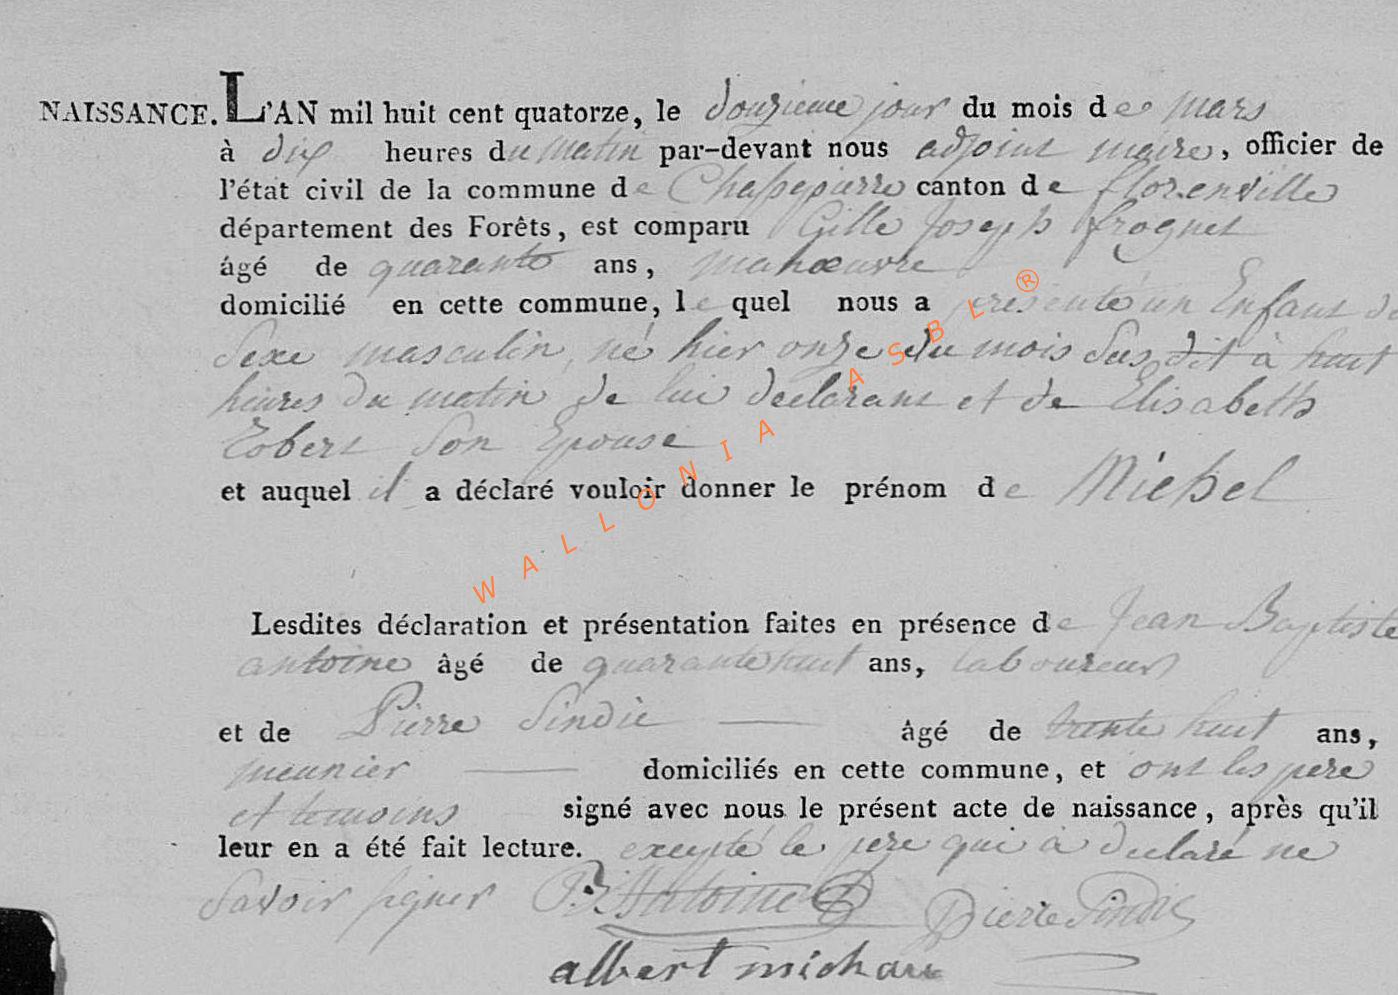 NAISSANCE. L'AN mil huit cent quatorze, le douzieme jour du mois de mars
à dix heures du matin par-devant nous adjoint maire, officier de
l'état civil de la commune de Chassepierre canton de florenville
département des Forêts, est comparu Gille Joseph frognet
âgé de quarante ans, manœuvre
domicilié en cette commune, le quel nous a presenté un Enfant de
Sexe masculin, né hier onze du mois Sus dit à huit
heures du matin de lui declarant et de Elisabeth
Robert Son Epouse
et auquel il a déclaré vouloir donner le prénom de Michel
Lesdites déclaration et présentation faites en présence de Jean Baptiste
antoine âgé de quarante huit ans, laboureur
et de Pierre Sindic âgé de trente huit ans,
meunier domiciliés en cette commune, et ont les pere
et temoins signé avec nous le présent acte de naissance, après qu'il
leur en a été fait lecture. excepté le pere qui à declaré ne
Savoir signer Antoine Pierre Sindic
albert michau
WALLONIA ASBL ®